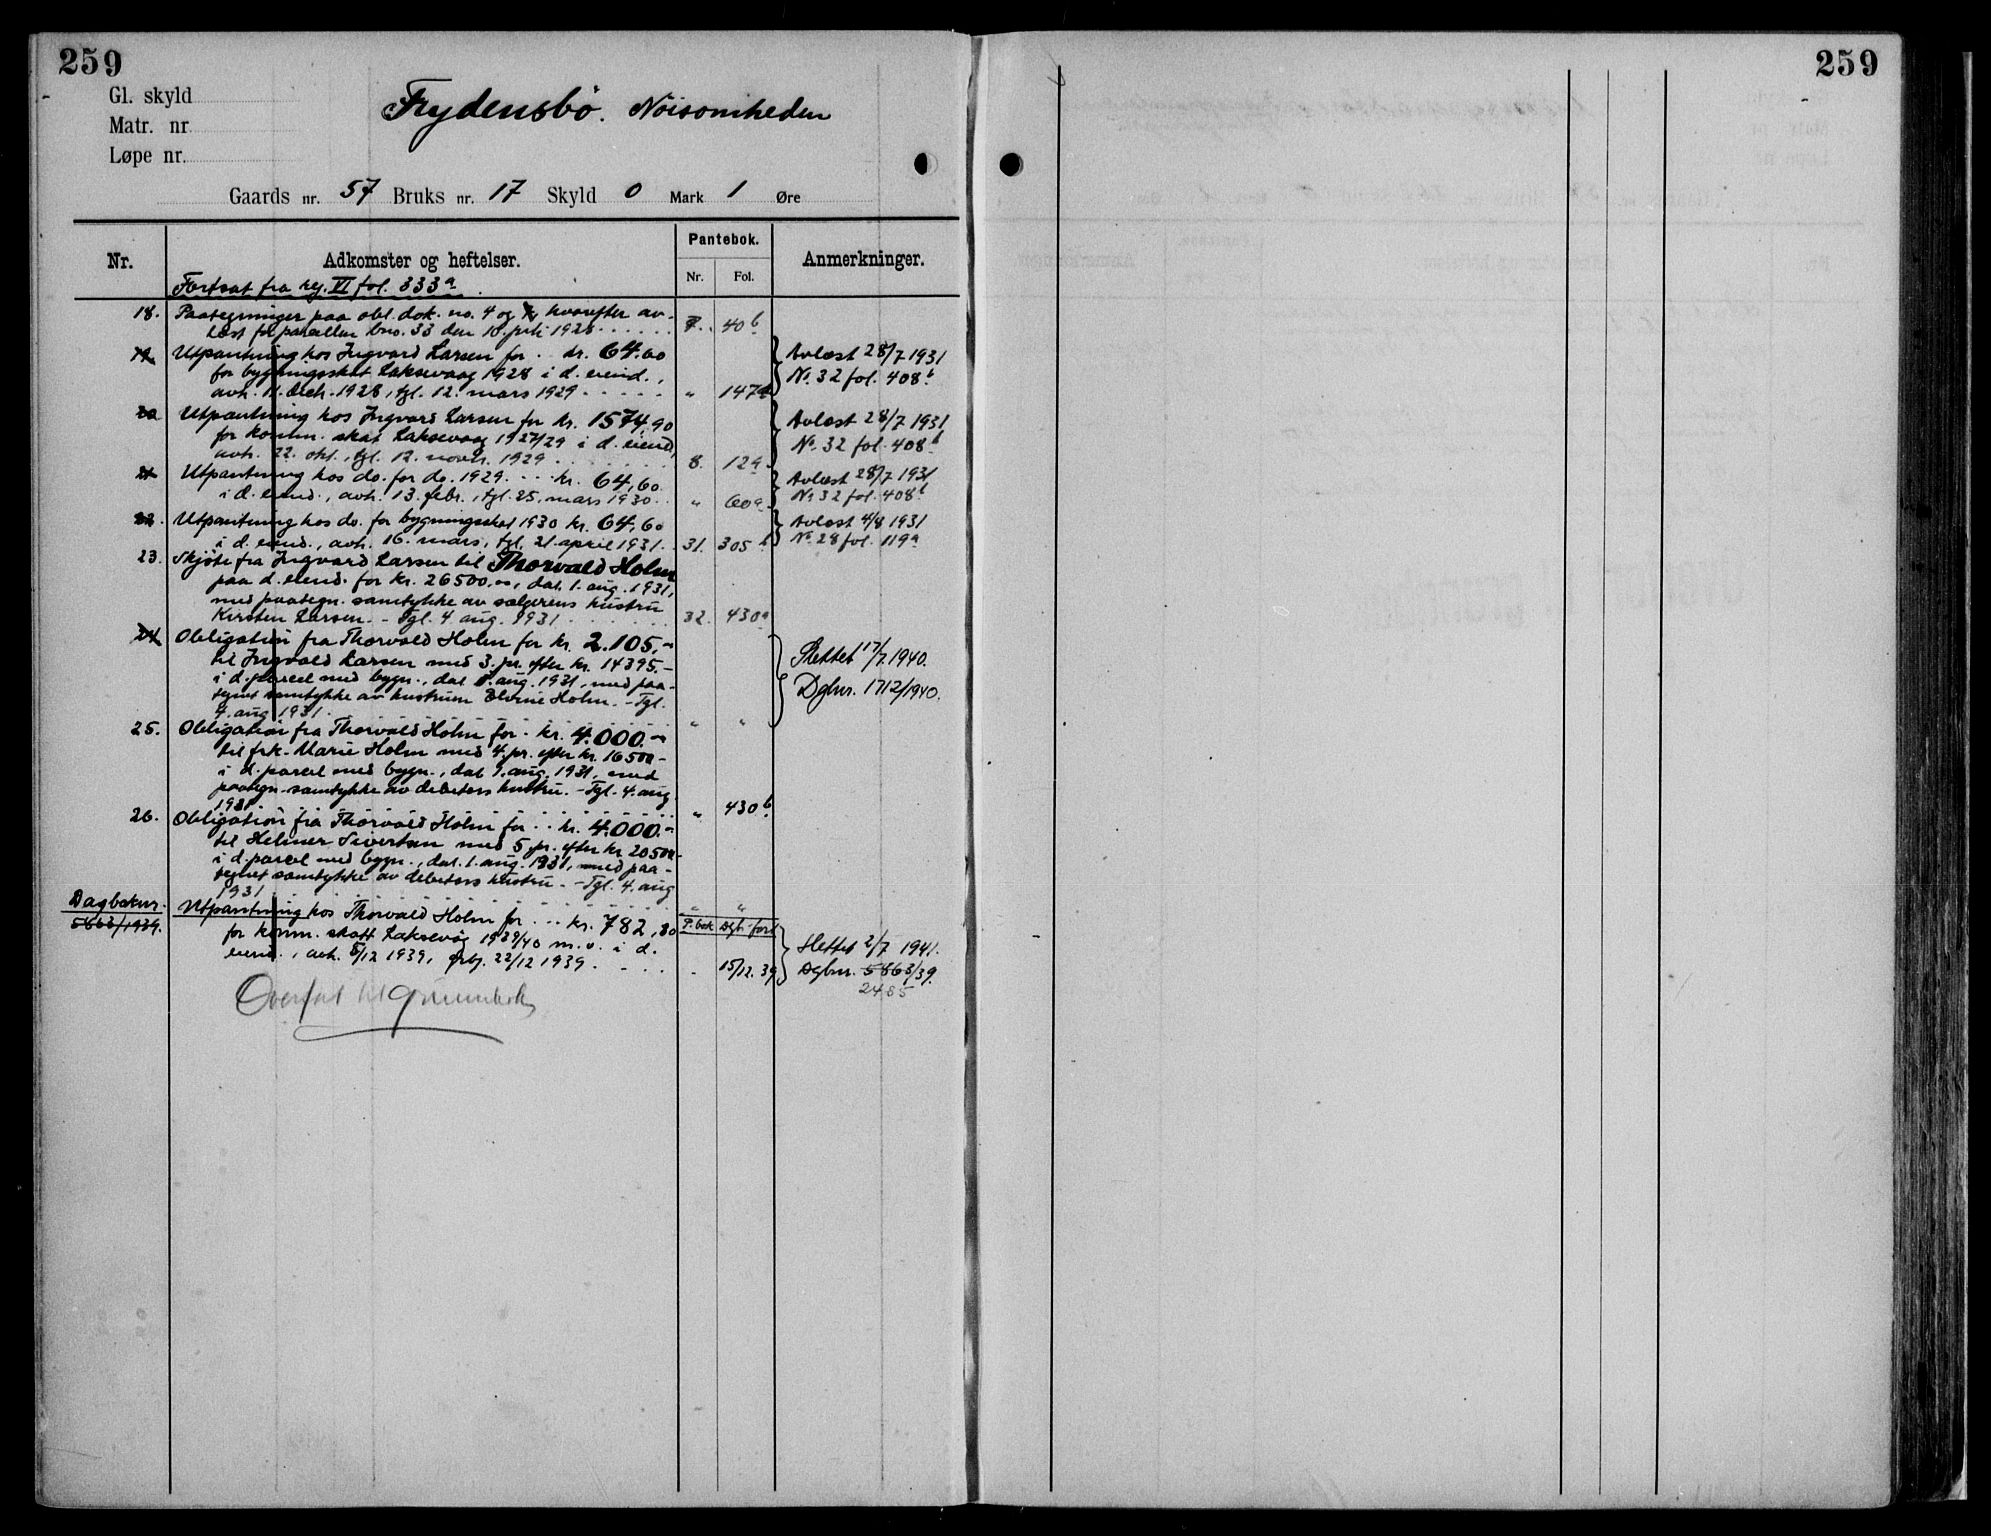 259
259
Gl. skyld
Matr. nr.
Løpe nr.
Frydensbö. Nöisomheden
Gaards nr. 57 Bruks nr. 17 Skyld 0 Mark 1 Øre
Nr. Adkomster og heftelser. Pantebok. Anmerkninger.
Nr. Fol.
Fortsat fra reg. VI fol. 333a.
18. Paategninger paa obl. dok. no. 4 og 7, hvorefter av-
læst for parcellen bno. 33 den 10. juli 1928 7. 40b
19. Utpantning hos Ingvard Larsen for kr. 64.60
for bygningsskat Laksevaag 1928 i d. eiend.,
avh. 11. dech. 1928, tgl. 12. mars 1929 " 147a
Avlæst 28/7 1931
No. 32 fol. 408b
20 Utpantning hos Ingvard Larsen for kr. 1574,90
for komm. skat Laksevaag 1927/29 i d. eiend,
avh. 22. okt., tgl. 12. novbr. 1929 8. 12a
Avlæst 28/7 1931
No. 32 fol. 408b
21 Utpantning hos do. for do. 1929 kr. 64,60
i d. eiend., avh. 13. febr., tgl. 25. mars 1930 " 60a
Avlæst 28/7 1931
No 32 fol. 408b
22. Utpantning hos do. for bygningsskat 1930 kr. 64,60
i d. eiend., avh. 16. mars, tgl. 21. april 1931. 31. 305b
Avlæst 4/8 1931
No. 28 fol. 119a
23. Skjöte fra Ingvard Larsen til Thorvald Holm
paa d. eiend. for kr. 26500,-, dat. 1. aug. 1931,
med paategn. samtykke av sælgerens hustru
Kirsten Larsen. - Tgl. 4 aug. 1931 32. 430a
24 Obligation fra Thorvald Holm for kr. 2.105,-
til Ingvald Larsen med 3. pr. efter kr. 14395.-
i d. parcel med bygn., dat 1. aug. 1931, med paa-
tegnet samtykke av hustruen Holm. - Tgl.
4. aug. 1931. " "
Slettet 17/7. 1940.
Dgbnr. 1712/1940.
25. Obligation fra Thorvald Holm for kr. 4.000.-
til frk. Marie Holm med 4. pr. efter kr. 16500-
i d. parcel med bygn., dat 1. aug. 1931, med
paategn. samtykke av debitors hustru. - Tgl. 4. aug
1931 " 430b
26. Obligation fra Thorvald Holm for kr. 4.000.-
til Helmer Sivertsen med 5. pr. efter kr. 20500-
i d. parcel med bygn., dat. 1. aug. 1931, med paa-
tegnet samtykke av debitors hustru. - Tgl. 4. aug
1931 " "
Dagboknr.
5863/1939.
Utpantning hos Thorvald Holm for kr. 782,80
for komm. skatt Laksevåg 1939/40 m.v. i d.
eiend., avh. 5/12 1939, 22/12 1939.
P. bok Dgb. förl
" 15/12. 39
Slettet 2/7 1941.
Dgbnr. 5863/39.
2485
Overført til grunnbok